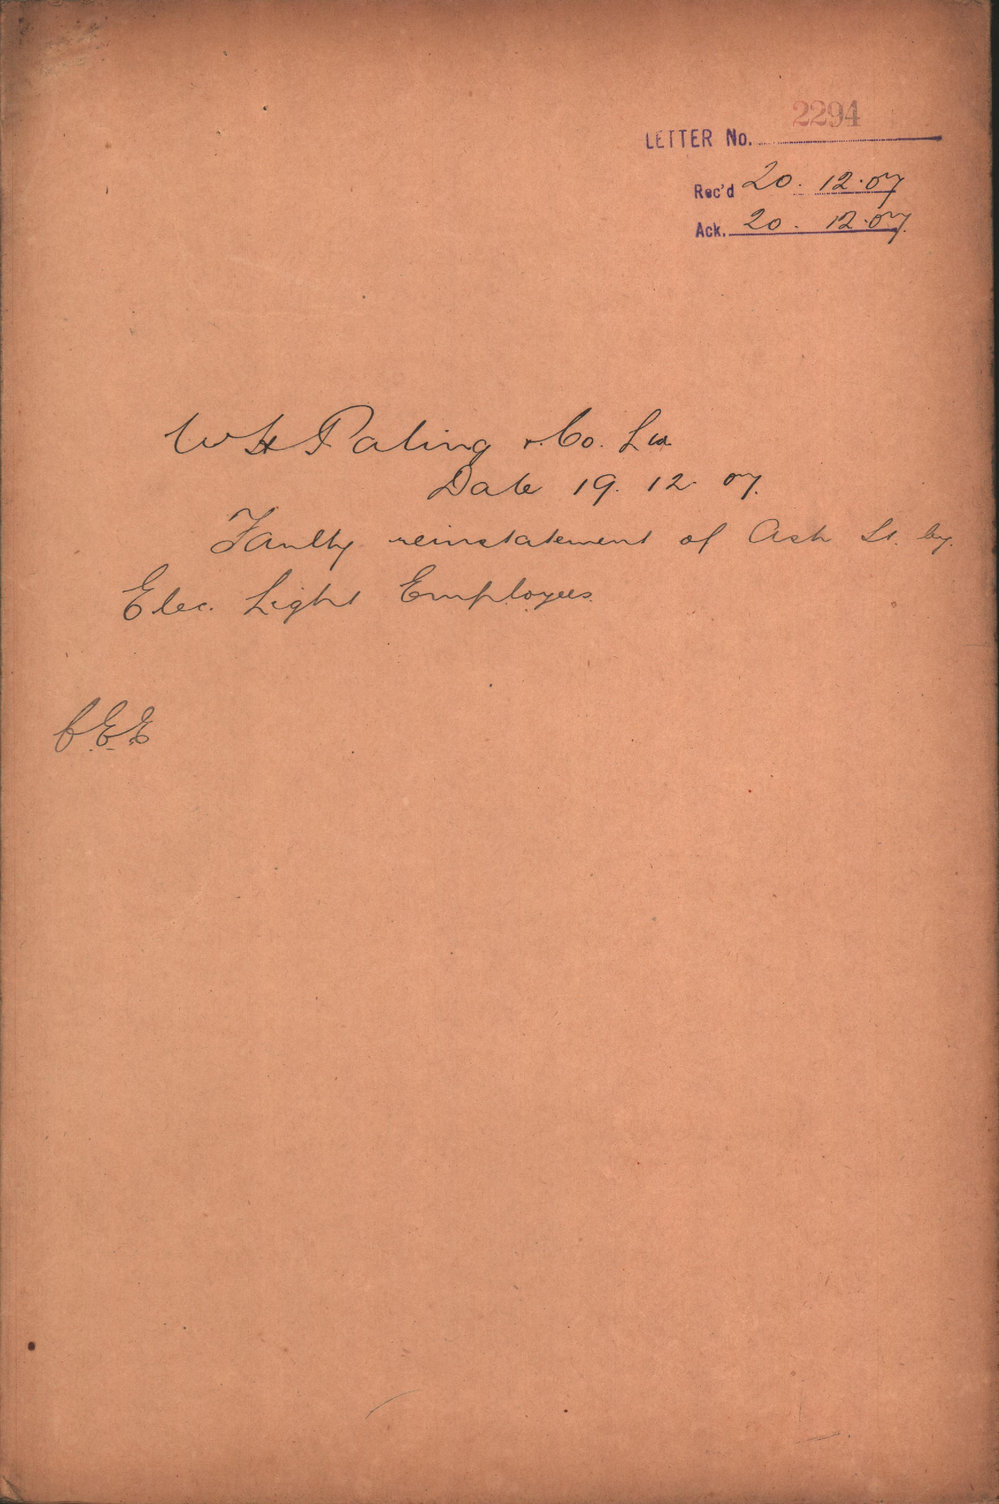 2294
LETTER No.
Rec'd 20. 12.07
Ack. 20. 12.07.
W H Paling & Co. Ltd
Date 19. 12. 07.
Faulty reinstatement of Ash St. by
Elec. Light Employees
C.E.E